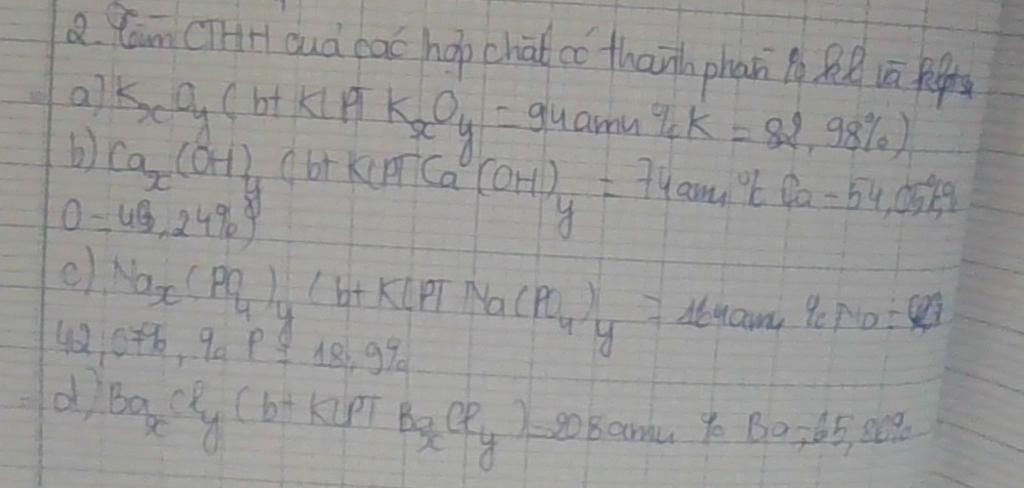 2. Tìm CTHH quả các hợp chất có thành phần % kl và klpt
a) KxOy (bt KLPT KxOy = 94amu % K = 82,98%)
b) Cax(OH)y (bt KLPT Ca(OH)y = 74amu % Ca = 54,05%,
O = 43,24%)
c) Nax(PO4)y (bt KLPT Na(PO4)y = 164amu % Na =
42,07%, % P = 18,9%
d) BaxCly (bt KLPT BaxCly) = 208amu % Ba = 65,86%